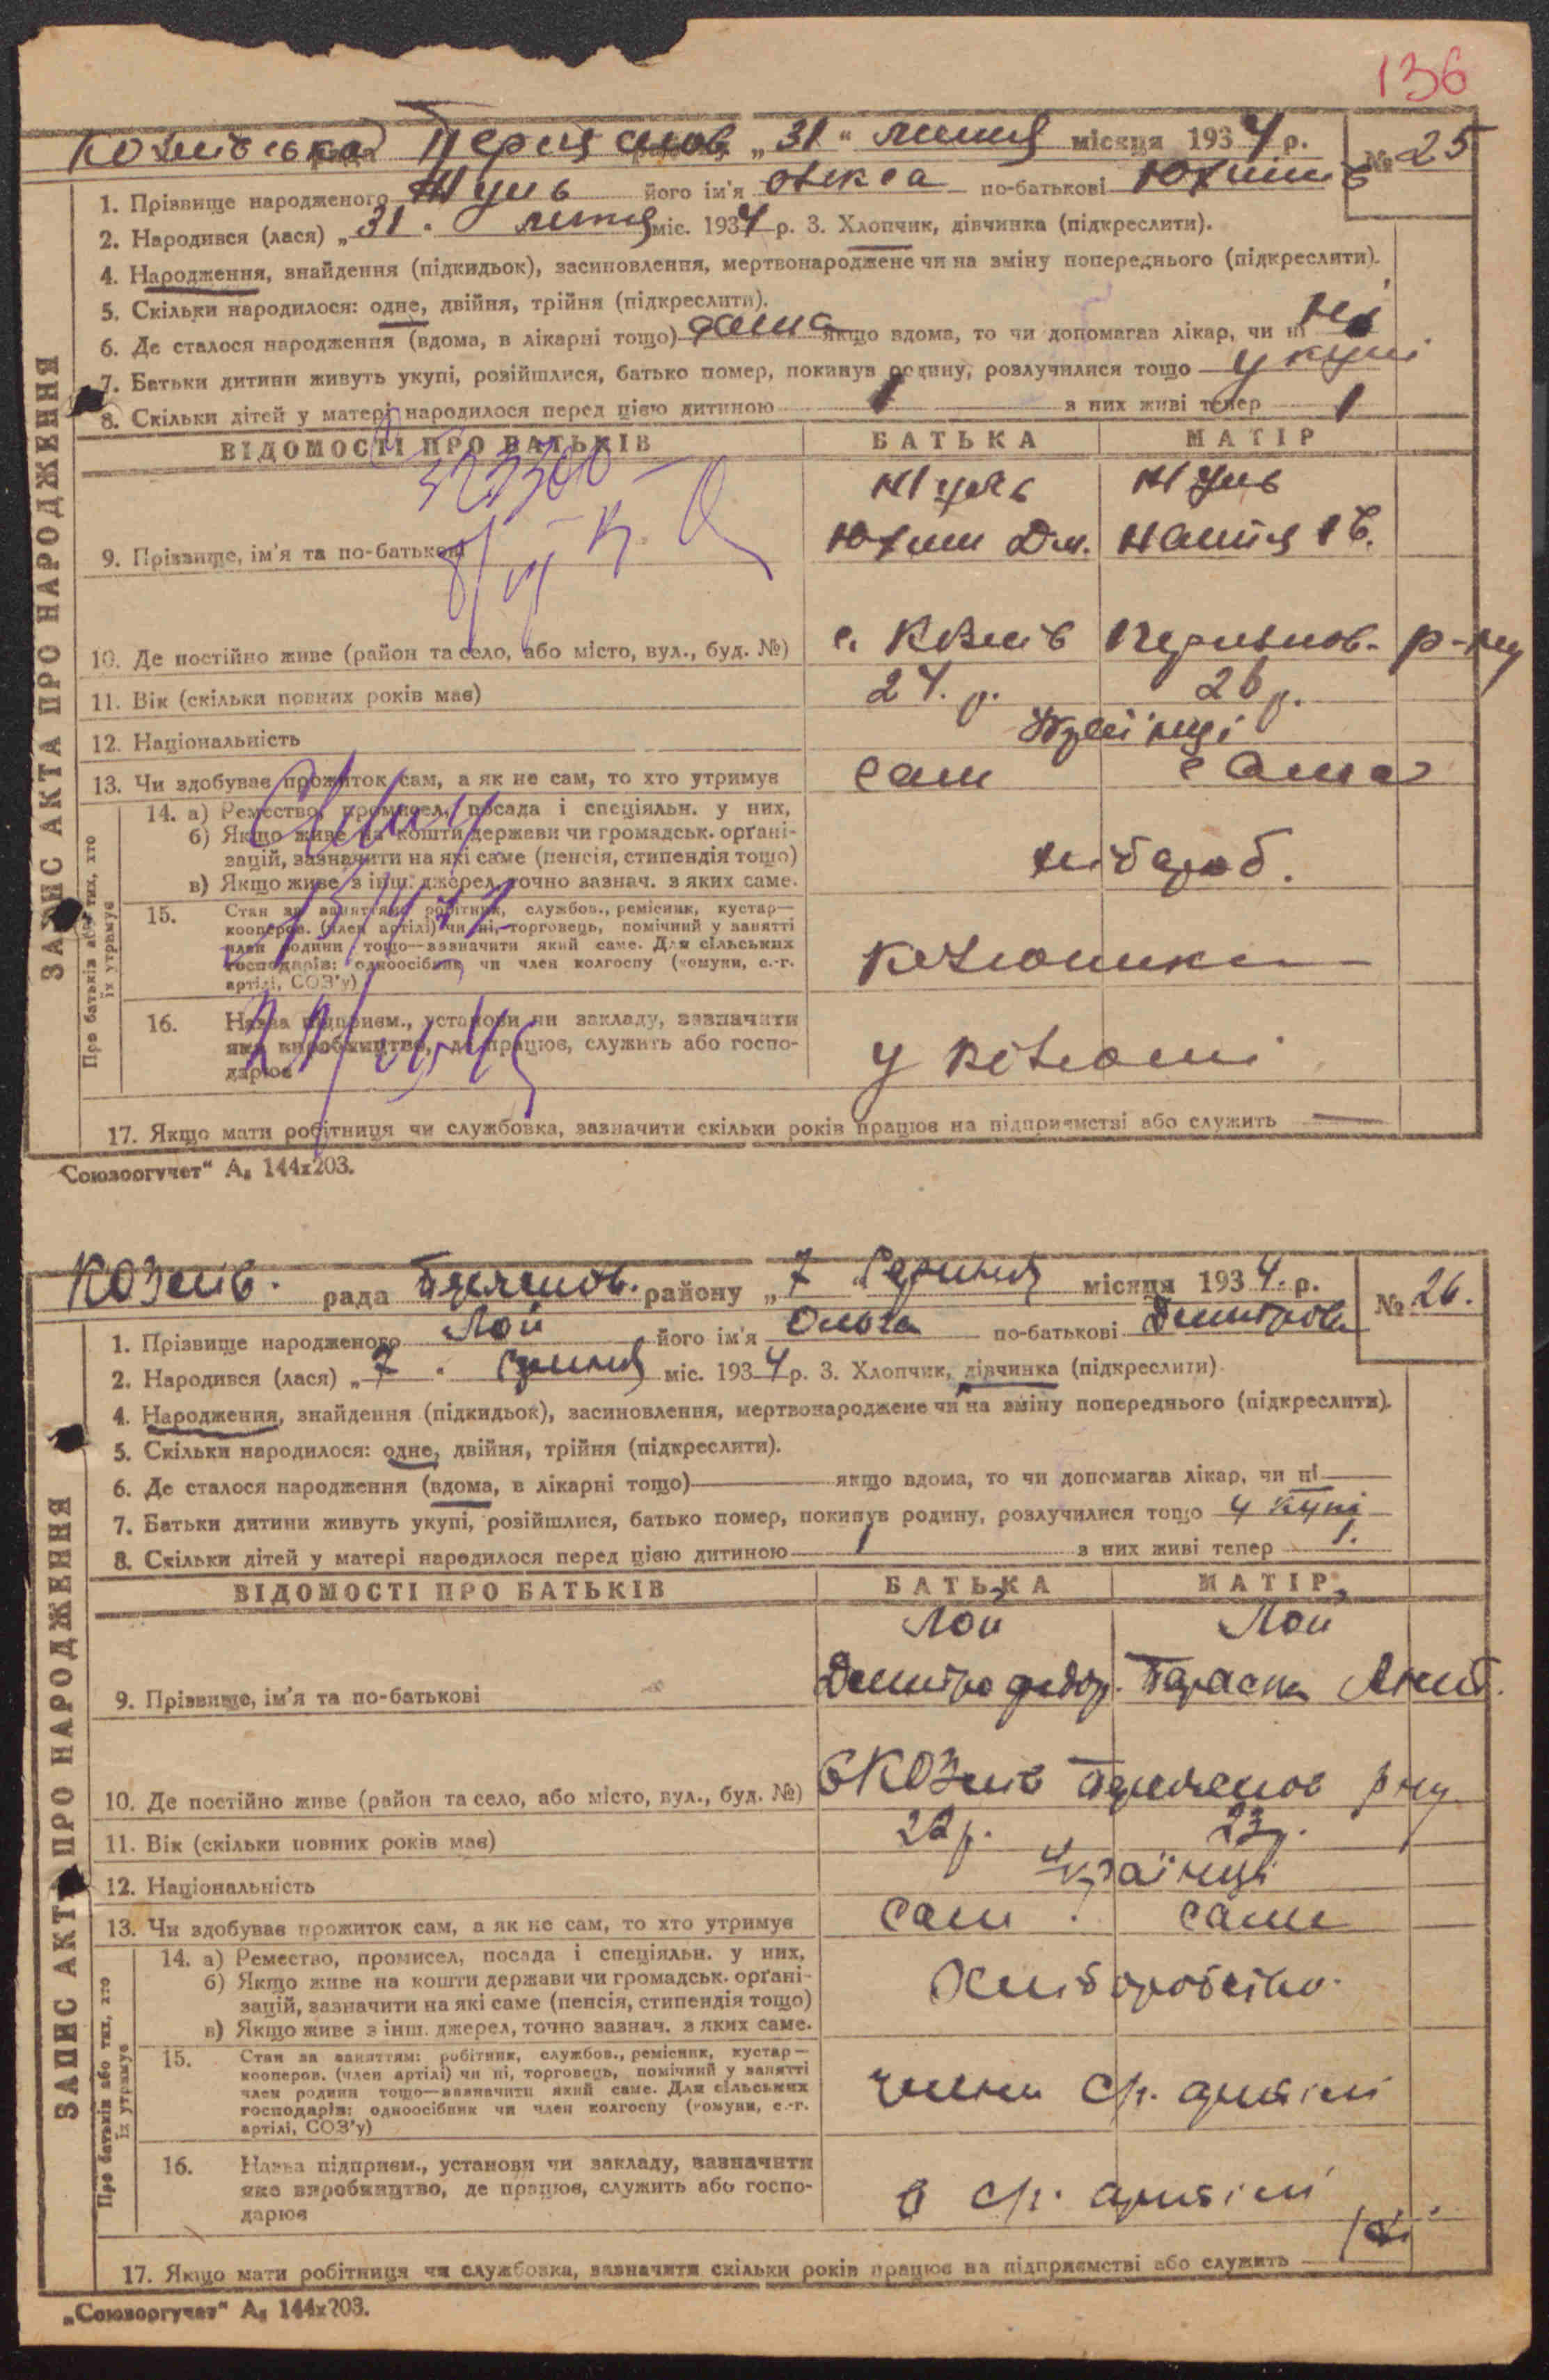 136
рада "31" липня місяця 1934 р. № 25
1. Прізвище народженого його ім'я Олекса по-батькові Юхимів
2. Народився (лася) „31" липня міс. 1934 р. 3. Хлопчик, дівчинка (підкреслити).
4. Народження, знайдення (підкидьок), засиновлення, мертвонароджене чи на зміну попереднього (підкреслити).
5. Скільки народилося: одне, двійня, трійня (підкреслити).
6. Де сталося народження (вдома, в лікарні тощо) дома якщо вдома, то чи допомагав лікар, чи ні ні
7. Батьки дитини живуть укупі, розійшлися, батько помер, покинув родину, розлучилися тощо укупі
8. Скільки дітей у матері народилося перед цією дитиною 1 з них живі тепер 1
ВІДОМОСТІ ПРО БАТЬКІВ БАТЬКА МАТІР
9. Прізвище, ім'я та по-батькові Юхим Дм. Настя Ів.
10. Де постійно живе (район та село, або місто, вул., буд. №) с. Козлів Переяслов. р-ну
11. Вік (скільки повних років має) 24. р. 26 р.
12. Національність Українці
13. Чи здобуває прожиток сам, а як не сам, то хто утримує сам сама
14. а) Ремество, промисел, посада і спеціяльн. у них,
б) Якщо живе на кошти держави чи громадськ. орґані-
зацій, зазначити на які саме (пенсія, стипендія тощо)
в) Якщо живе з інш. джерел, точно зазнач. з яких саме.
хлібороб.
15. Стан за заняттям: робітник, службов., ремісник, кустар—
кооперов. (член артілі) чи ні, торговець, помічний у занятті
член родини тощо—зазначити який саме. Для сільських
господарів: одноосібник чи член колгоспу (комуни, с.-г.
артілі, СОЗ'у)
колгоспники
16. Назва підприєм., установи чи закладу, зазначити
яке виробництво, де працює, служить або госпо-
дарює
у колгоспі
17. Якщо мати робітниця чи службовка, зазначити скільки років працює на підприємстві або служить —
ЗАПИС АКТА ПРО НАРОДЖЕННЯ
Про батьків або тих, хто їх утримує
„Союзоргучет" А₅ 144x203.
Козлів. рада Переяслов. району „7 Серпня місяця 1934 р. № 26.
1. Прізвище народженого Лой його ім'я Ольга по-батькові Дмитрова
2. Народився (лася) „7" серпня міс. 1934 р. 3. Хлопчик, дівчинка (підкреслити)
4. Народження, знайдення (підкидьок), засиновлення, мертвонароджене чи на зміну попереднього (підкреслити).
5. Скільки народилося: одне, двійня, трійня (підкреслити).
6. Де сталося народження (вдома, в лікарні тощо) якщо вдома, то чи допомагав лікар, чи ні
7. Батьки дитини живуть укупі, розійшлися, батько помер, покинув родину, розлучилися тощо укупі
8. Скільки дітей у матері народилося перед цією дитиною 1 з них живі тепер 1.
ВІДОМОСТІ ПРО БАТЬКІВ БАТЬКА МАТІР
Лой Лой
9. Прізвище, ім'я та по-батькові Дмитро Федор. Параска
10. Де постійно живе (район та село, або місто, вул., буд. №) с Козлів Переяслов р ну
11. Вік (скільки повних років має) 22 р. 23 р.
12. Національність Українці
13. Чи здобуває прожиток сам, а як не сам, то хто утримує сам сама
14. а) Ремество, промисел, посада і спеціяльн. у них,
б) Якщо живе на кошти держави чи громадськ. орґані-
зацій, зазначити на які саме (пенсія, стипендія тощо)
в) Якщо живе з інш. джерел, точно зазнач. з яких саме.
Хліборобство.
15. Стан за заняттям: робітник, службов., ремісник, кустар—
кооперов. (член артілі) чи ні, торговець, помічний у занятті
член родини тощо—зазначити який саме. Для сільських
господарів: одноосібник чи член колгоспу (комуни, с.-г.
артілі, СОЗ'у)
члени с/г. артілі
16. Назва підприєм., установи чи закладу, зазначити
яке виробництво, де працює, служить або госпо-
дарює
в с/г. артілі
17. Якщо мати робітниця чи службовка, зазначити скільки років працює на підприємстві або служить
ЗАПИС АКТА ПРО НАРОДЖЕННЯ
Про батьків або тих, хто їх утримує
„Союзоргучет" А₅ 144x203.